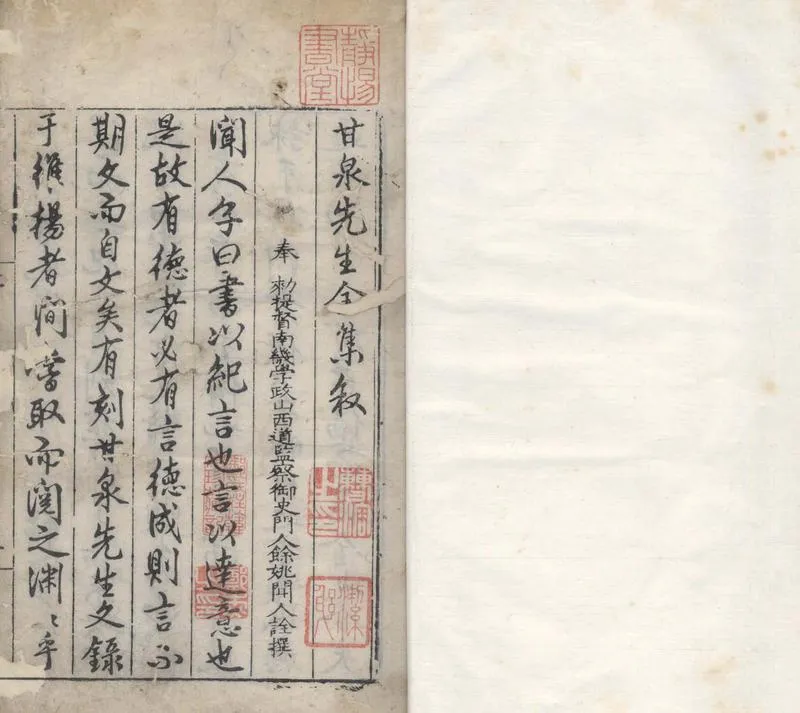 靜惕
書堂
甘泉先生全集叙
奉 勑提督南畿學政山西道監察御史門人餘姚聞人詮撰
聞人子曰書以紀言也言以達意也
是故有德者必有言德成則言不
期文而自文矣有刻甘泉先生文錄
于維揚者間嘗取而閱之淵〻乎
曹溶
之印
潔躬